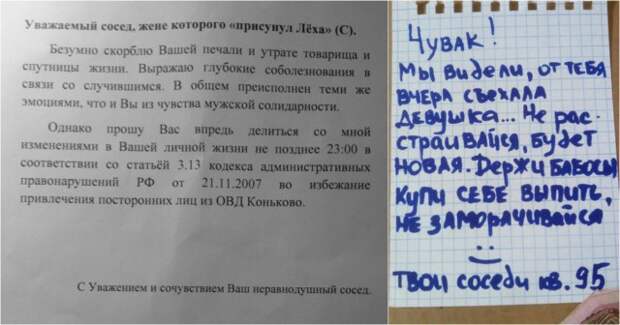 Уважаемый сосед, жене которого «присунул Лёха» (С).
Безумно скорблю Вашей печали и утрате товарища и
спутницы жизни. Выражаю глубокие соболезнования в
связи со случившимся. В общем преисполнен теми же
эмоциями, что и Вы из чувства мужской солидарности.
Однако прошу Вас впредь делиться со мной
изменениями в Вашей личной жизни не позднее 23:00 в
соответствии со статьёй 3.13 кодекса административных
правонарушений РФ от 21.11.2007 во избежание
привлечения посторонних лиц из ОВД Коньково.
С Уважением и сочувствием Ваш неравнодушный сосед.
Чувак!
Мы видели, от тебя
вчера съехала
девушка... Не рас-
страивайся, будет
новая. Держи бабосы
купи себе выпить,
не заморачивайся
твои соседи кв. 95